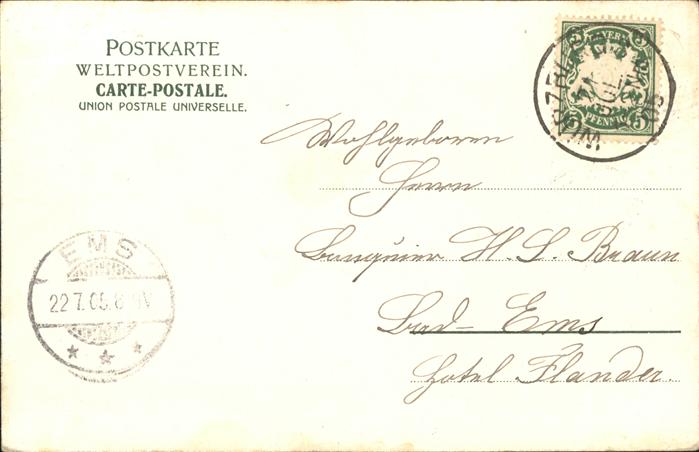 POSTKARTE
WELTPOSTVEREIN.
CARTE-POSTALE.
UNION POSTALE UNIVERSELLE.
BAYERN
5 PFENNIG 5
Wohlgeboren
Herrn
Banquier H. L. Braun
Bad-Ems
Hotel Flander.
EMS
22 7. 05. 8 V